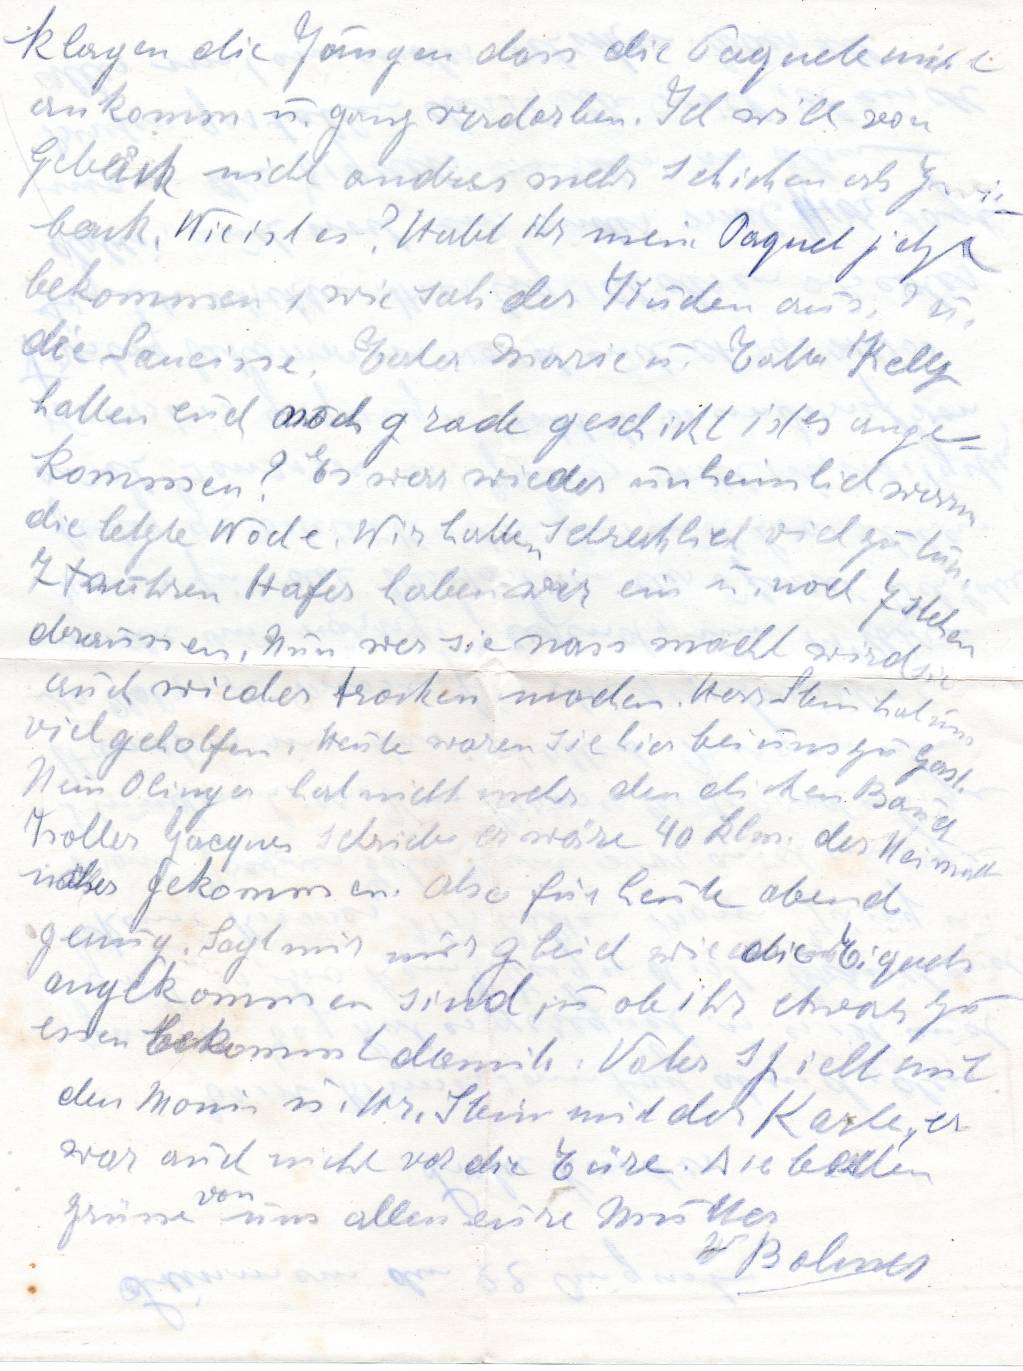 klagen die Jungen dass die Paquete nicht
ankomm u. ganz verdorben. Ich will von
Gebäck nicht andres mehr schicken als Zwie-
back. Wie ist es? Habt ihr mein Paquet jetzt
bekommen, wie sah der Kuchen aus.? u.
die Saucisse. Marie u. Ketty
hatten euch noch grade geschickt ist es ange=
kommen? Es war wieder unheimlich warm
die letzte Woche. Wir hatten schrecklich viel zu tun.
7 Fuhren Hafer haben wir ein u. noch 7 stehen
daraussen. Nun wer sie nass macht wird sie
auch wieder trocken machen. Herr Stein hat uns
viel geholfen. Heute waren sie hier bei uns zu Gast.
Nein Olinger hat nicht mehr den dicken Bauch
Jacques schrieb er wäre 40 klm. der Heimath
näher gekommen. Also für heute abend
genug. Sagt mir nur gleich wie die
angekommen sind, u ob ihr etwas zu
essen bekommt damit. Vater spielt mit
den Monni u. Hr. Stein mit der Karte, er
war auch nicht vor die Türe. Die besten
grüsse von uns allen eure Mutter